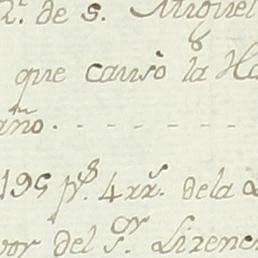 2.º de S. Miguel
que causò la Ha
año. - - - - - -
195 p.s 4 rr.s de la
vor del S.or Lizenc